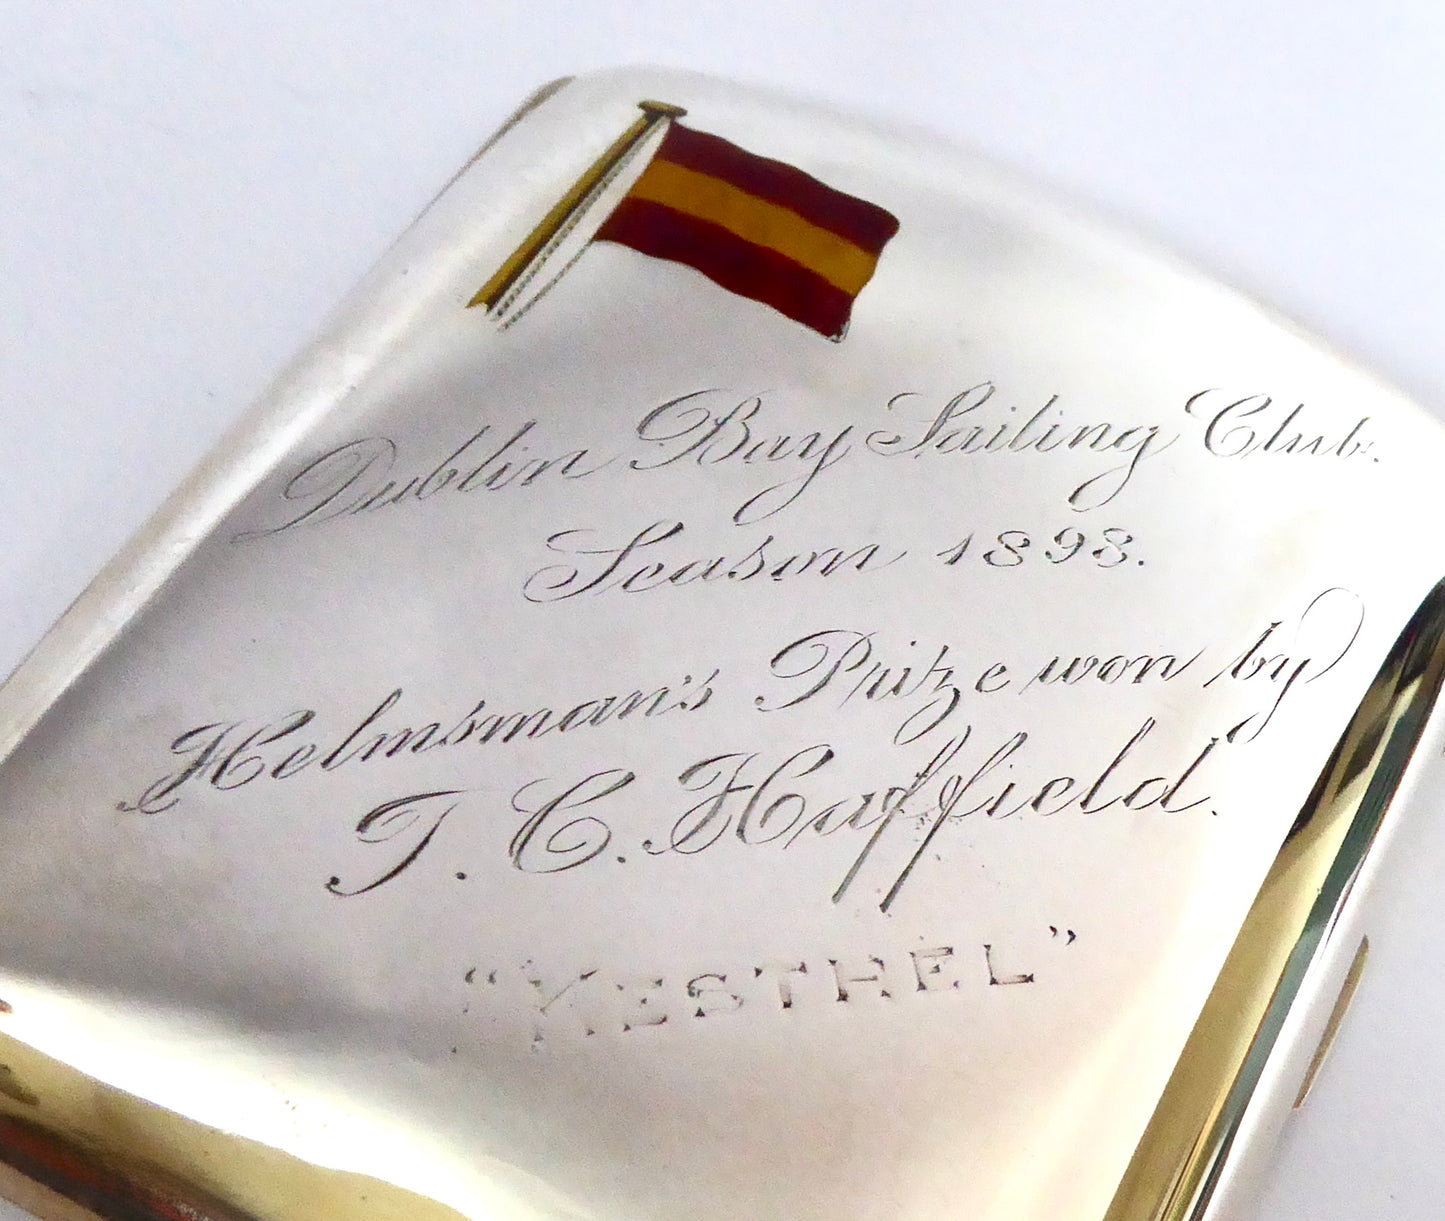 Dublin Bay Sailing Club.
Season 1898.
Helmsman's Prize won by
T. C. Haffield.
"KESTREL"